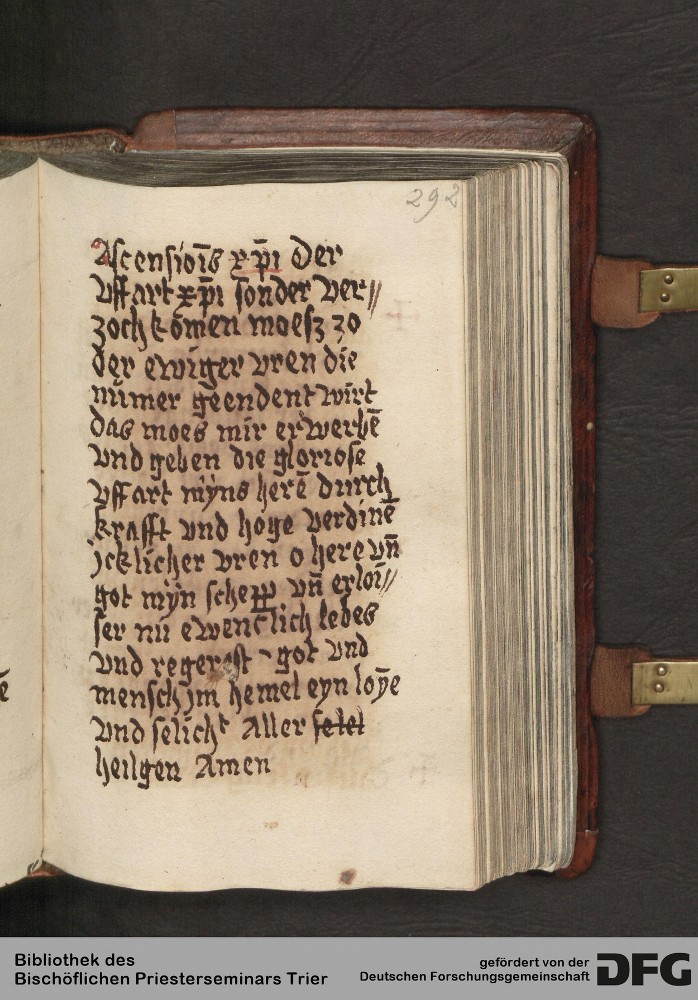 292
Ascensioīs xp̄i Der
Vffart xp̄i sonder ver//
zoch kōmen moesz zo
der ewiger vren die
nūmer geendent wirt
das moes mir erwerbē
vnd geben die gloriose
vffart mÿns herē durch
krafft vnd hoge verdinē
jcklicher vren o here vn̄
got mÿn schepp vn̄ erloi//
ser nu ewenclich lebes
vnd regerest got vnd
mensch jm hemel eyn loȳe
vnd selicht Aller selel
heilgen Amen
Bibliothek des
Bischöflichen Priesterseminars Trier
gefördert von der
Deutschen Forschungsgemeinschaft
DFG